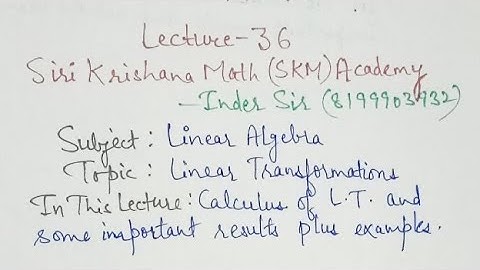 Lecture-36
Siri Krishana Math (SKM) Academy
-Inder Sir (8199903932)
Subject: Linear Algebra
Topic: Linear Transformations
In This Lecture: Calculus of L.T. and
some important results plus examples.